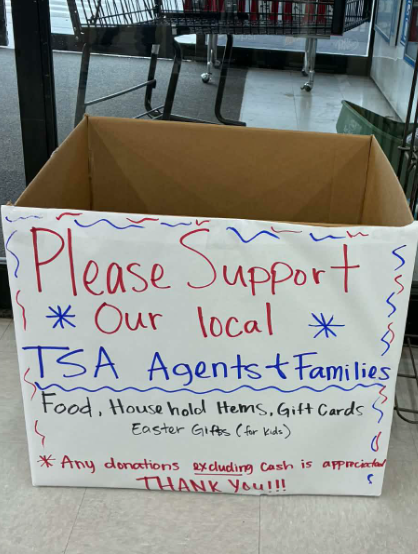 Please Support
* Our local *
TSA Agents + Families
Food, Household Items, Gift Cards
Easter Gifts (for kids)
* Any donations excluding cash is appreciated
THANK YOU!!!